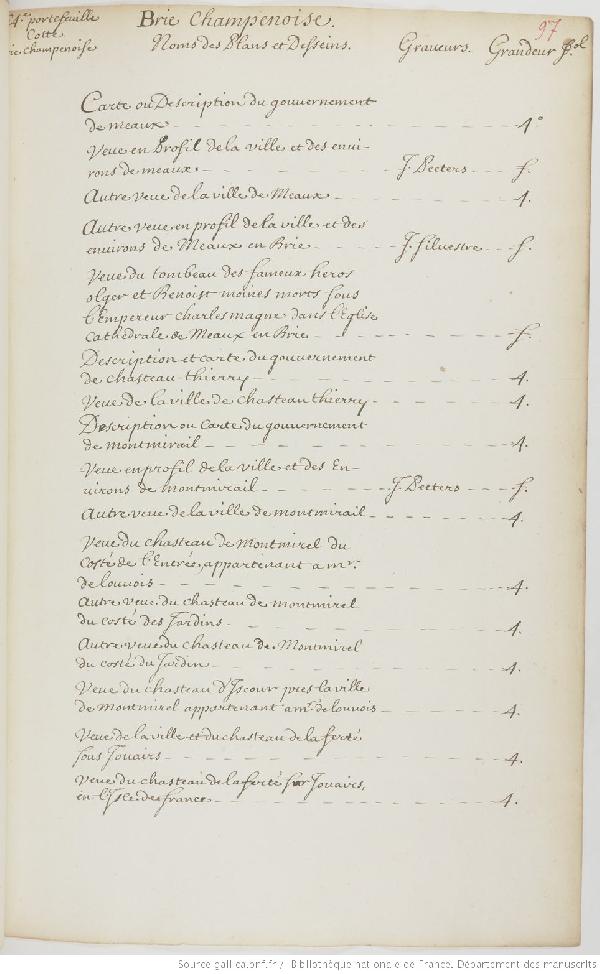 24.e portefeuille
Cotté
Brie champenoise
Brie Champenoise.
97
Noms des Plans et Desseins. Graveurs. Grandeur fol
Carte ou Description du gouvernement
de meaux 4°
Veue en Profil de la ville et des envi-
rons de meaux J. Peeters f.
Autre veue de la ville de Meaux 4.
Autre veue en profil de la ville et des
environs de Meaux en Brie J. Silvestre f.
Veue du tombeau des fameux heros
olger et Benoist moines morts sous
l'Empereur charles magne dans l'Eglise
cathedrale de Meaux en Brie f.
Description et carte du gouvernement
de chasteau-thierry 4.
Veue de la ville de chasteau thierry 4.
Description ou Carte du gouvernement
de montmirail 4.
Veue en profil de la ville et des En-
uirons de montmirail J. Peeters f.
Autre veue de la ville de montmirail 4.
Veue du chasteau de Montmirel du
Costé de l'Entrée, appartenant a mr.
de louvois 4.
Autre veue du chasteau de montmirel
du costé des Jardins 4.
Autre veue du chasteau de Montmirel
du costé du Jardin 4.
Veue du chasteau d'Iscour pres la ville
de Montmirel appartenant a mr. de louvois 4.
Veue de la ville et du chasteau de la ferté
sous Jouairs 4.
Veue du chasteau de la ferté sur Jouaires,
en l'Isle de france 4.
Source gallica.bnf.fr / Bibliothèque nationale de France. Département des manuscrits